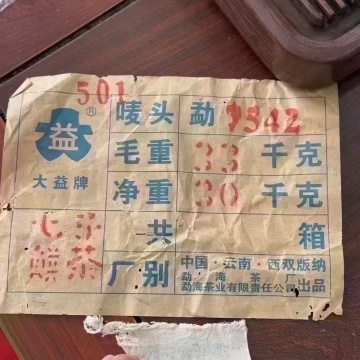 501
益®
大益牌
唛头 勐 7542
毛重 33 千克
净重 30 千克
七子
饼茶
共 箱
厂别 中国·云南·西双版纳
勐海茶厂
勐海茶业有限责任公司 出品